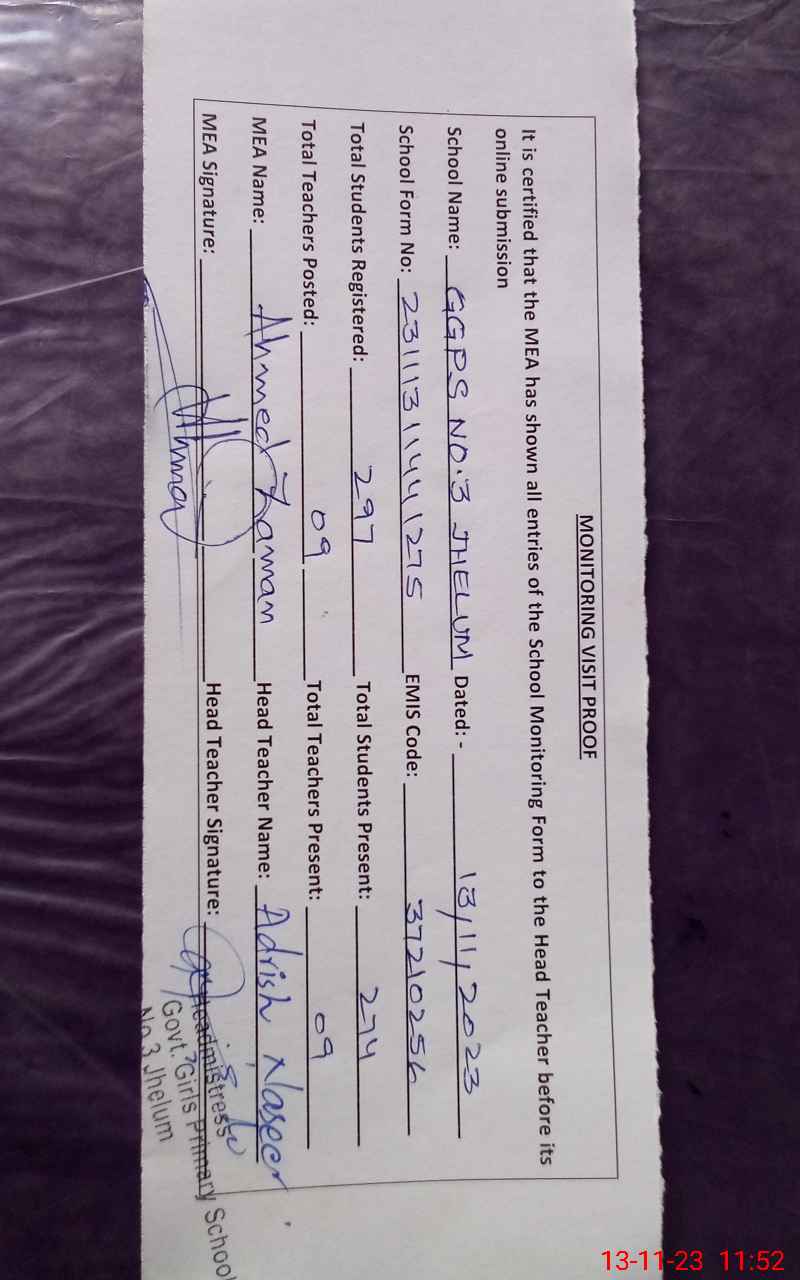 MONITORING VISIT PROOF
It is certified that the MEA has shown all entries of the School Monitoring Form to the Head Teacher before its
online submission
School Name: GGPS NO.3 JHELUM Dated: - 13/11/2023
School Form No: 231113114441275 EMIS Code: 37210256
Total Students Registered: 297 Total Students Present: 274
Total Teachers Posted: 09 Total Teachers Present: 09
MEA Name: Ahmed Zaman Head Teacher Name: Adrish Naseer
MEA Signature: Head Teacher Signature:
Headmistress
Govt. Girls Primary School
No 3 Jhelum
13-11-23 11:52